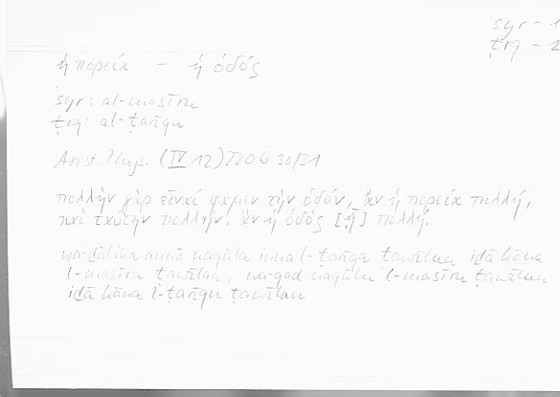 syr - 1
ṭrq - 2
ἡ πορεία - ἡ ὁδός
syr: al-masīru
ṭrq: al-ṭarīqu
Arist. Phys. (IV 12) 220 b 30/31
πολλὴν γάρ εἶναί φαμεν τὴν ὁδόν, ἂν ἡ πορεία πολλή,
καὶ ταύτην πολλήν, ἂν ἡ ὁδὸς [ᾖ] πολλή.
wa-ḏālika annā naqūlu inna l-ṭarīqa ṭawīlun iḏā kāna
l-masīru ṭawīlan, wa-qad naqūlu l-masīru ṭawīlun
iḏā kāna l-ṭarīqu ṭawīlan